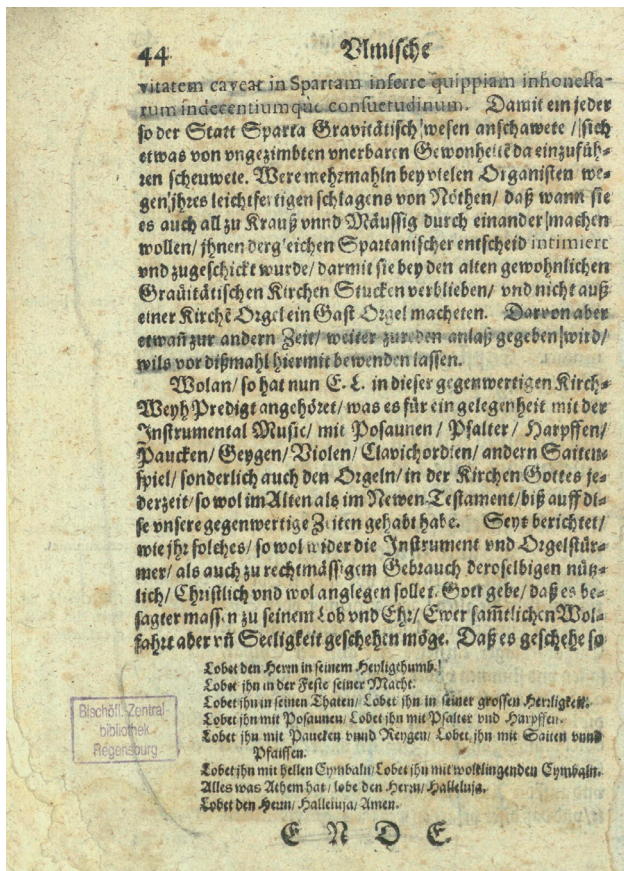 44 Vlmische
vitatem caveat in Spartam inferre quippiam inhonesta-
rum indecentiumque consuetudinum. Damit ein jeder
so der Statt Sparta Gravitätisch wesen anschawete / sich
etwas von vngezimbten vnerbaren Gewonheitẽ da einzufüh-
ren scheuwete. Were mehrmahln bey vielen Organisten we-
gen jhres leichtfertigen schlagens von Nöthen / daß wann sie
es auch all zu Krauß vnnd Mäussig durch einander machen
wollen / jhnen dergleichen Spartanischer entscheid intimiert
vnd zugeschickt wurde / darmit sie bey den alten gewohnlichen
Graüitätischen Kirchen Stucken verblieben / vnd nicht auß
einer Kirchẽ Orgel ein Gast Orgel macheten. Darvon aber
etwañ zur andern Zeit / weiter zureden anlaß gegeben wird /
wils vor dißmahl hiermit bewenden lassen.
Wolan / so hat nun E. L. in dieser gegenwertigen Kirch-
Weyh Predigt angehöret / was es für ein gelegenheit mit der
Instrumental Music / mit Posaunen / Psalter / Harpffen /
Paucken / Geygen / Violen / Clavichordien / andern Saiten-
spiel / sonderlich auch den Orgeln / in der Kirchen Gottes je-
derzeit / so wol im Alten als im Newen Testament / biß auff di-
se vnsere gegenwertige Zeiten gehabt habe. Seyt berichtet /
wie jhr solches / so wol wider die Instrument vnd Orgelstür-
mer / als auch zu rechtmässigem Gebrauch deroselbigen nütz-
lich / Christlich vnd wol anglegen sollet. Gott gebe / daß es be-
sagter massen zu seinem Lob vnd Ehr / Ewer sam̃tlichen Wol-
fahrt aber vñ Seeligkeit geschehen möge. Daß es geschehe so
Lobet den Herrn in seinem Heyligthumb!
Lobet jhn in der Feste seiner Macht.
Lobet jhn in seinen Thaten / Lobet jhn in seiner grossen Herrligkeit.
Lobet jhn mit Posaunen / Lobet jhn mit Psalter vnd Harpffen.
Lobet jhn mit Paucken vnnd Reygen / Lobet jhn mit Saiten vnnd
Pfaiffen.
Lobet jhn mit hellen Cymbaln / Lobet jhn mit wolklingenden Cymbaln.
Alles was Athem hat / lobe den Herrn / Halleluja.
Lobet den Herrn / Halleluja / Amen.
E N D E.
Bischöfl. Zentral-
bibliothek
Regensburg